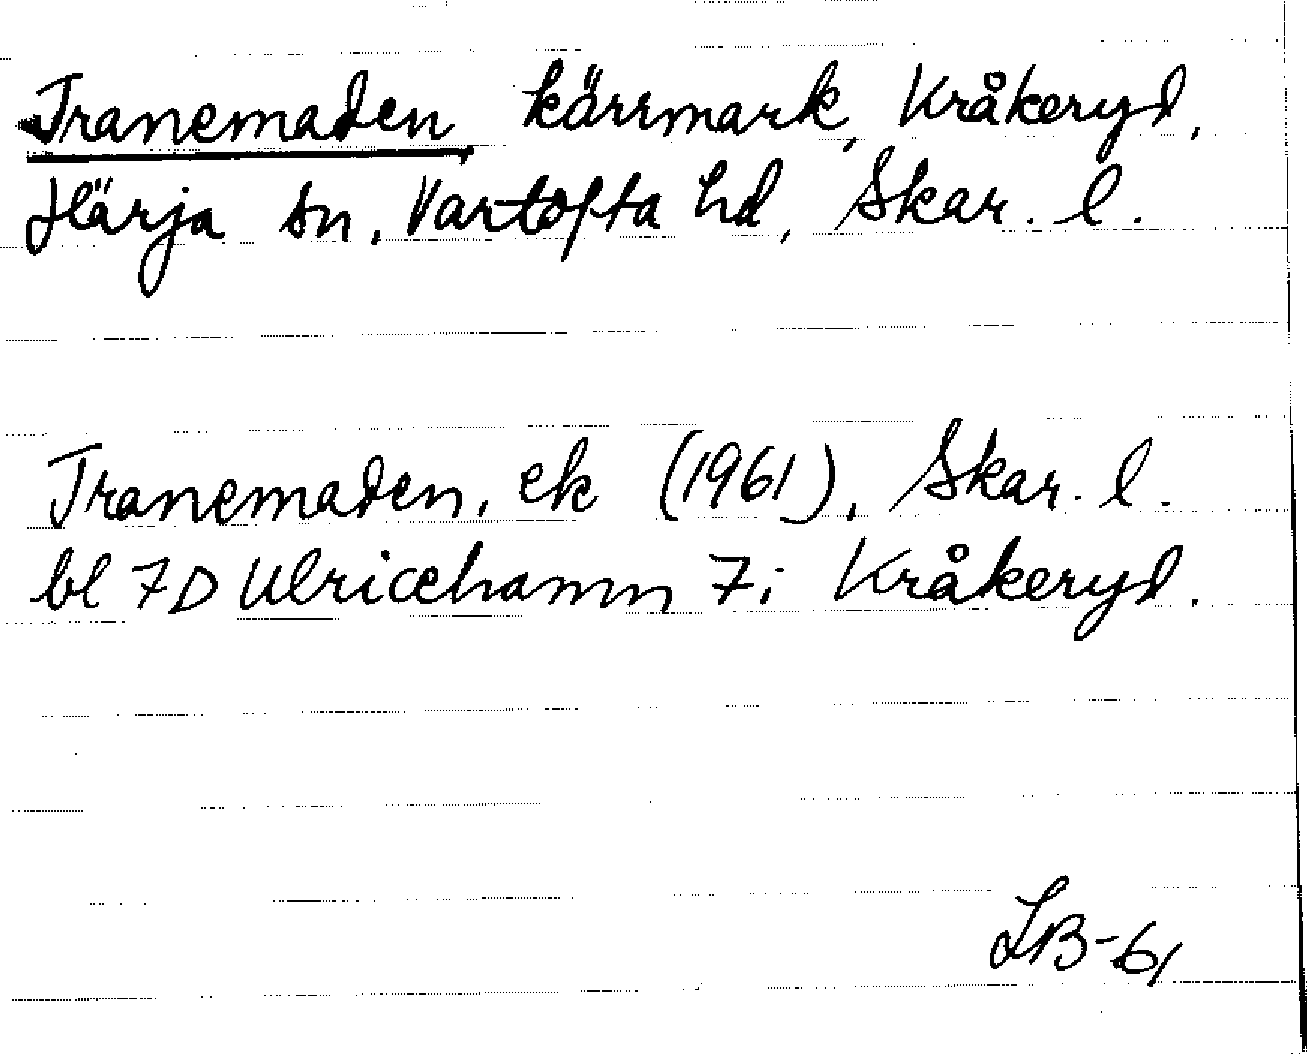 Tranemaden, kärrmark, Kråkeryd,
Härja sn, Vartofta hd, Skar. l.
Tranemaden, ek (1961), Skar. l.
bl 7D Ulricehamn 7i Kråkeryd.
LB-61